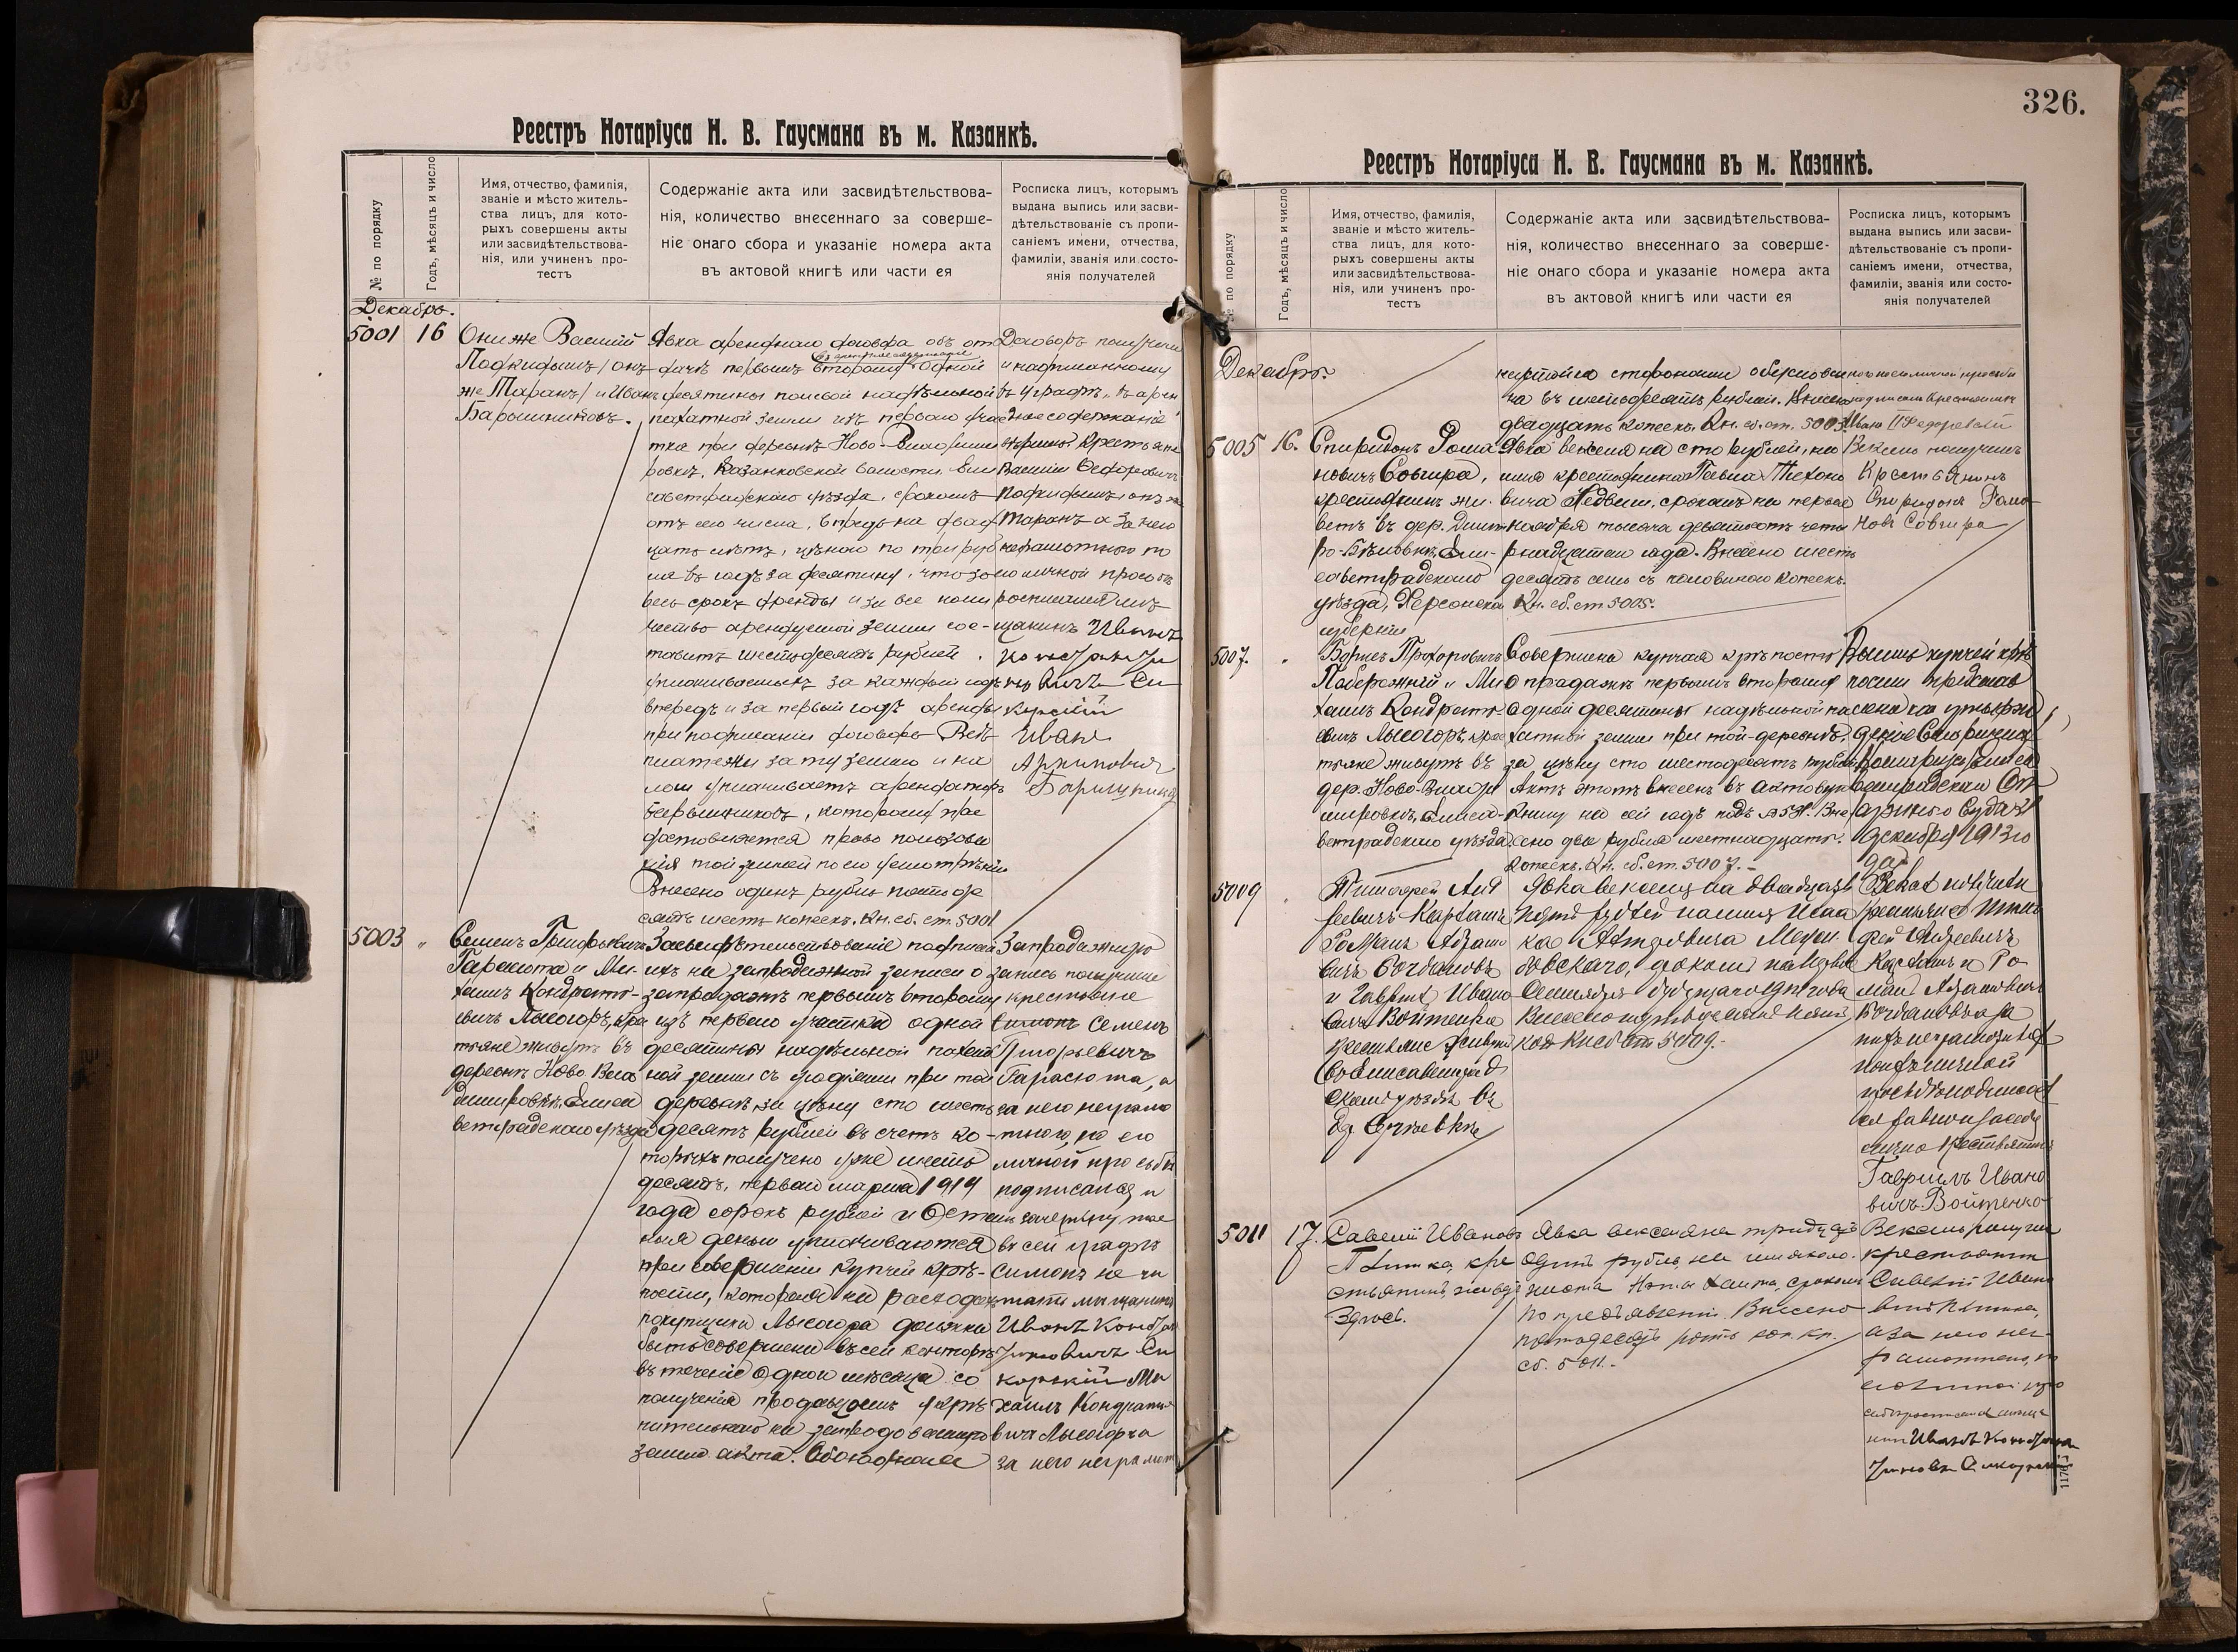 Реестръ Нотаріуса Н. В. Гаусмана въ м. Казанкѣ.
№ по порядку
Годъ, мѣсяцъ и число
Имя, отчество, фамилія,
званіе и мѣсто житель-
ства лицъ, для кото-
рыхъ совершены акты
или засвидѣтельствова-
нія, или учиненъ про-
тестъ
Содержаніе акта или засвидѣтельствова-
нія, количество внесеннаго за соверше-
ніе онаго сбора и указаніе номера акта
въ актовой книгѣ или части ея
Росписка лицъ, которымъ
выдана выпись или засви-
дѣтельствованіе съ пропи-
саніемъ имени, отчества,
фамиліи, званія или состо-
янія получателей
Декабрь.
5001 16
Они же Василій
Подкидышъ / онъ
же Таранъ / и Иванъ
Барышниковъ.
Явка аренднаго договора объ от
дачѣ первымъ второму одной
десятины полевой надѣльной
пахатной земли изъ перваго уча
тка при деревнѣ Ново-Владими
ровкѣ, Казанковской волости, Ели
саветградскаго уѣзда, срокомъ
отъ сего числа, впредь на двад
цать лѣтъ, цѣною по три руб
ля въ годъ за десятину, что за
весь срокъ аренды и за все коли
чество арендуемой земли сос-
тавитъ шестьдесятъ рублей,
уплачиваемыхъ за каждый годъ
впередъ и за первый годъ аренды
при подписаніи договора. Всѣ
платежи за ту землю и на
логи уплачиваетъ арендаторъ
Барышниковъ, которому пре
доставляется право пользова
нія той землей по его усмотрѣнію
Внесено одинъ рубль пятьде
сятъ шесть копеекъ. Кн. сб. ст. 5001
Договоръ получили
и надписанному
въ графѣ „въ арен
дное содержаніе
вѣримъ. Крестьяне
Василій Федоровичъ
Подкидышъ, онъ же
Таранъ а за него
неграмотнаго по
его личной просьбѣ
росписался мѣ
щанинъ Иванъ
Конст
Си
корскій
Иванъ
Архиповичъ
Барышник
5003 "
Семенъ Григорьевичъ
Гарасюта и Ми-
хаилъ Кондрать-
евичъ Лысогоръ, кре
тяне живутъ въ
деревнѣ Ново Вла
димировкѣ, Елиса
ветградскаго уѣзда
Засвидѣтельствованіе подписей
ихъ на запродажной записи о
запродажѣ первымъ второму
изъ перваго участка одной
десятины надѣльной пахат
ной земли съ угодіями при той
деревнѣ за цѣну сто шесть
десятъ рублей въ счетъ ко-
торыхъ получено уже шесть
десятъ, первого марта 1914
года сорокъ рублей и осталь
ныя деньги уплачиваются
при совершеніи купчей крѣ-
пости, которая на расходы
покупщика Лысогора должна
быть совершена въ сей конторѣ
въ теченіе одного мѣсяца со
полученія продавцомъ укрѣ
пительнаго на запродаваемую
землю акта. Обоюдная
Запродажную
запись получили
крестьяне
Симонъ Семенъ
Григорьевичъ
Гарасюта, а
за него неграмо
тнаго, по его
личной просьбѣ
подписался и
зачеркнутое
въ сей графѣ
Симонъ не чи
тать мѣщанинъ
Иванъ
Си
корскій Ми
хаилъ Кондрать
евичъ Лысогоръ а
за него неграмот
326.
Реестръ Нотаріуса Н. В. Гаусмана въ м. Казанкѣ.
№ по порядку
Годъ, мѣсяцъ и число
Имя, отчество, фамилія,
званіе и мѣсто житель-
ства лицъ, для кото-
рыхъ совершены акты
или засвидѣтельствова-
нія, или учиненъ про-
тестъ
Содержаніе акта или засвидѣтельствова-
нія, количество внесеннаго за соверше-
ніе онаго сбора и указаніе номера акта
въ актовой книгѣ или части ея
Росписка лицъ, которымъ
выдана выпись или засви-
дѣтельствованіе съ пропи-
саніемъ имени, отчества,
фамиліи, званія или состо-
янія получателей
Декабрь.
неустойка сторонами обусловле
на въ шестьдесятъ рублей. Внесено
двадцать копеекъ. Кн. сб. ст. 5003.
по его личной просьбѣ
подписалъ крестьянинъ
Иван Федоревскій
5005 16.
Спиридонъ Рома
новичъ Совгира,
крестьянинъ жи-
ветъ въ дер. Дмит
ро-Бѣловкѣ, Ели-
саветградскаго
уѣзда, Херсонской
губерніи
Явка векселя на сто рублей, на
имя крестьянина Павла Тихоно
вича Недвиги, срокомъ на первое
Ноября тысяча девятьсотъ четы
рнадцатаго года. Внесено шесть
десятъ семь съ половиною копеекъ.
Кн. сб. ст. 5005.
Вексель получилъ
Крестьянинъ
Спиридонъ Рома
новъ Совгира
5007. "
Борисъ Прохоровичъ
Побережный и Ми
хаилъ Кондрать-
евичъ Лысогоръ, крес
тьяне живутъ въ
дер. Ново-Влади
мировкѣ, Елиса-
ветградскаго уѣзда
Совершена купчая крѣпость
о продажѣ первымъ второму
одной десятины надѣльной па
хатной земли при той-деревнѣ,
за цѣну сто шестьдесятъ рублей
Актъ этотъ внесенъ въ актовую
книгу на сей годъ подъ № 574. Вне
сено два рубля шестнадцать
копеекъ. Кн. сб. ст. 5007. -
Выпись купчей крѣ
пости представ
лена на утверж
деніе
Нотаріуса Елиса
ветградскаго Ок
ружного Суда 21
декабря 1913 го
да
5009 "
Тимофей Анд
реевичъ Карташъ
Романъ Абрамо
вичъ Богдановъ
и Гавріилъ Ивано
вичъ Войтенко
крестьяне живутъ
въ Елисаветград
скомъ уѣздѣ въ
д. Сергѣевкѣ
Явка векселя на двадцать
пять рублей на имя Исаа
ка
довскаго, срокомъ на первое
Сентября будущаго 1914 года
Внесено
коп. Кн сб ст 5009.-
Вексель получили
крестьяне Тимо
фей Андреевичъ
Карташъ и Ро
манъ Абрамовичъ
Богдановъ а за
нихъ неграмотныхъ
по ихъ личной
просьбѣ подписал
ся
крестьянинъ
Гавриилъ Ивано
вичъ Войтенко
5011 17.
Савелій Ивановъ
крестьянинъ, живетъ
здѣсь.
Явка векселя на тридцать
одинъ рубль, на имя
срокомъ
по предъявленіи. Внесено
пятьдесятъ пять коп. кн.
сб. 5011.-
Вексель получилъ
крестьянинъ
Савелій Ивано
а за него нег-
рамотнаго, по
его личной про
Иванъ